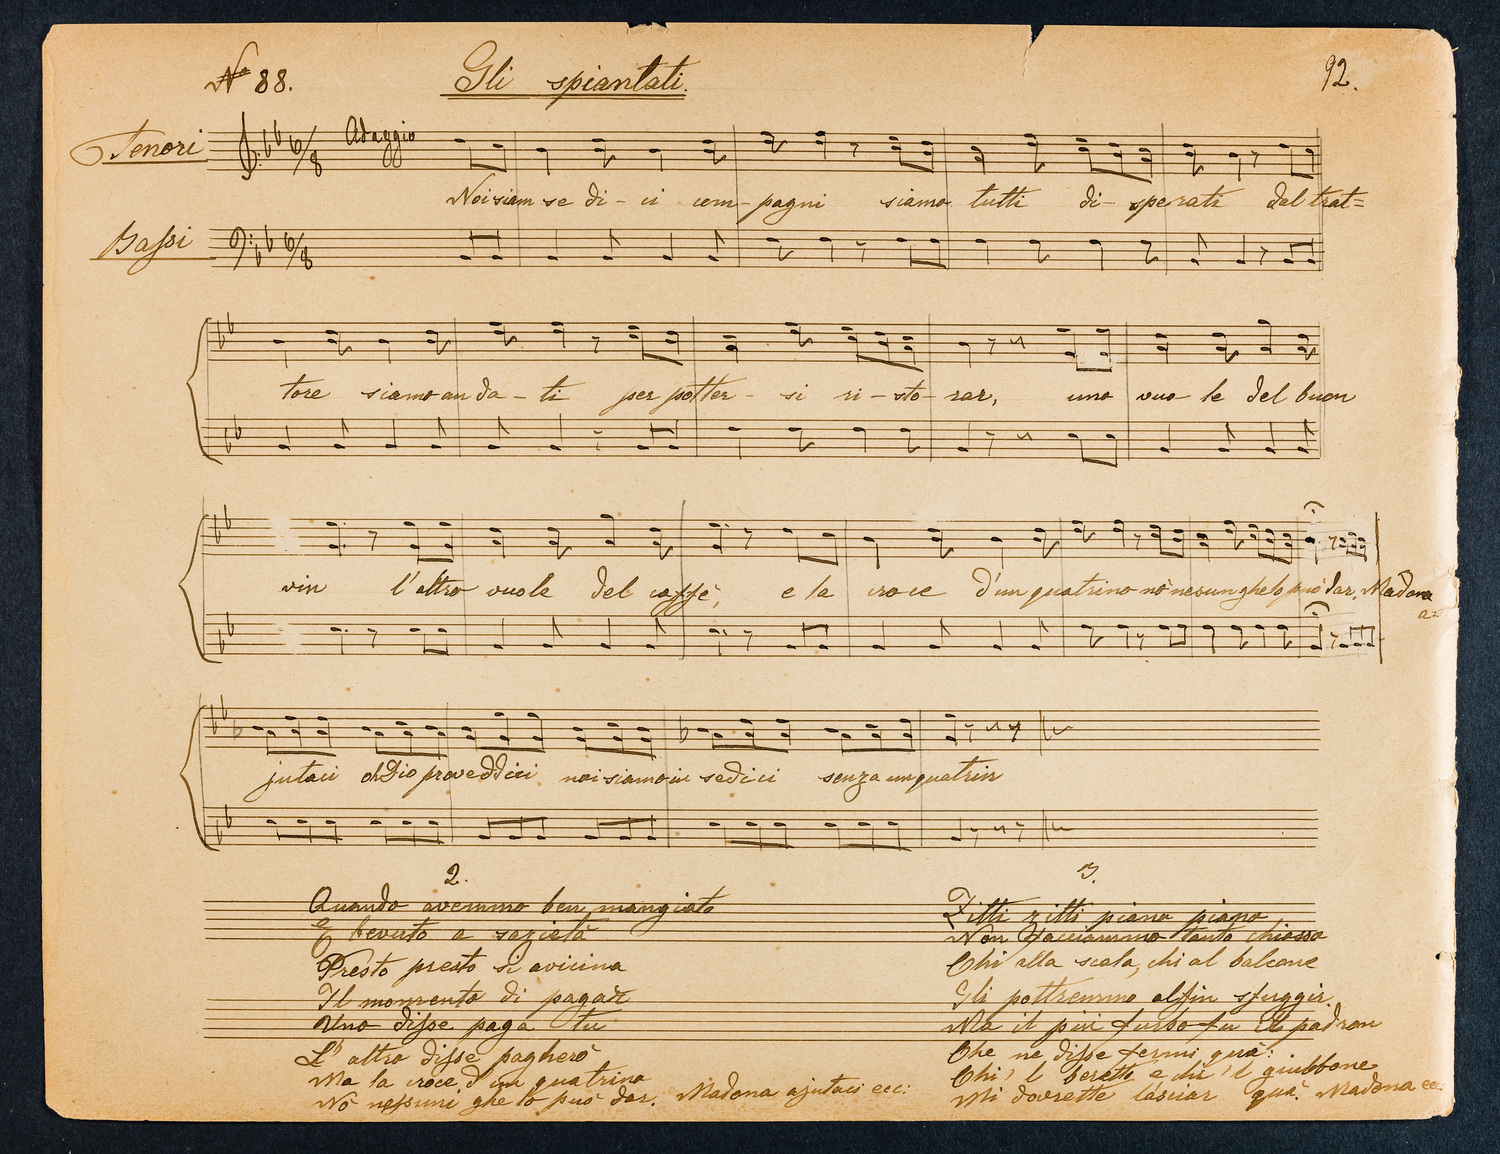 No 88.
Gli spiantati.
92.
Tenori
Adaggio
6/8
Noi siam se di - ci com - pagni siamo tutti di - sperati dal trat=
Bassi
6/8
tore siamo an da - ti per potter - si ri - sto - rar, uno vuo - le del buon
vin l'altro vuole del caffè, e la croce d'un quatrino nò nesun ghe lo può dar. Madona
a=
jutaci oh Dio proveddici noi siamo in sedici senza un quatrin
2.
Quando avemmo ben mangiato
E bevuto a sazietà
Presto presto si avicina
Il momento di pagar
Uno disse paga tu
L'altro disse pagherò
Ma la croce d'un quatrino
Nò nessuni ghe lo può dar. Madona ajutaci ecc:
3.
Zitti zitti piano piano
Non facciammo tanto chiasso
Chi alla scala, chi al balcone
Gli pottremmo alfin sfuggir.
Ma il più furbo fu il padron
Che ne disse fermi quà:
Chi 'l beretto e chi 'l giubbone
Mi dovrette lasciar quà. Madona ecc: